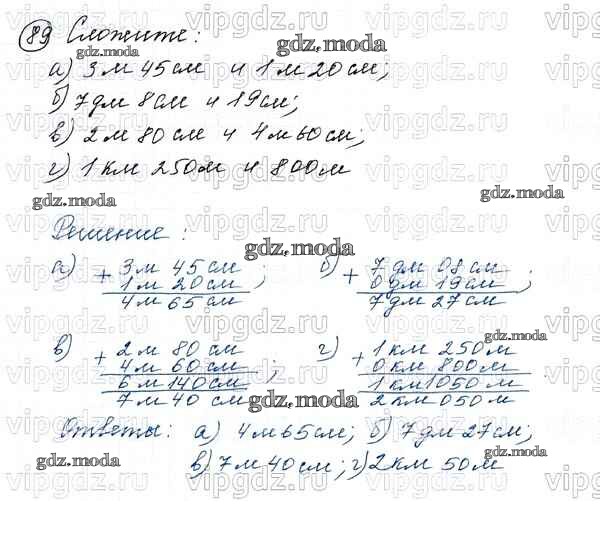 89 Сложите:
а) 3 м 45 см и 1 м 20 см;
б) 7 дм 8 см и 19 см;
в) 2 м 80 см и 4 м 60 см;
г) 1 км 250 м и 800 м
Решение:
а) + 3 м 45 см
1 м 20 см ;
4 м 65 см
б) + 7 дм 08 см
0 дм 19 см ;
7 дм 27 см
в) + 2 м 80 см
4 м 60 см
6 м 140 см ;
7 м 40 см
г) + 1 км 250 м
0 км 800 м
1 км 1050 м
2 км 050 м
Ответы: а) 4 м 65 см; б) 7 дм 27 см;
в) 7 м 40 см; г) 2 км 50 м
gdz.moda
vipgdz.ru